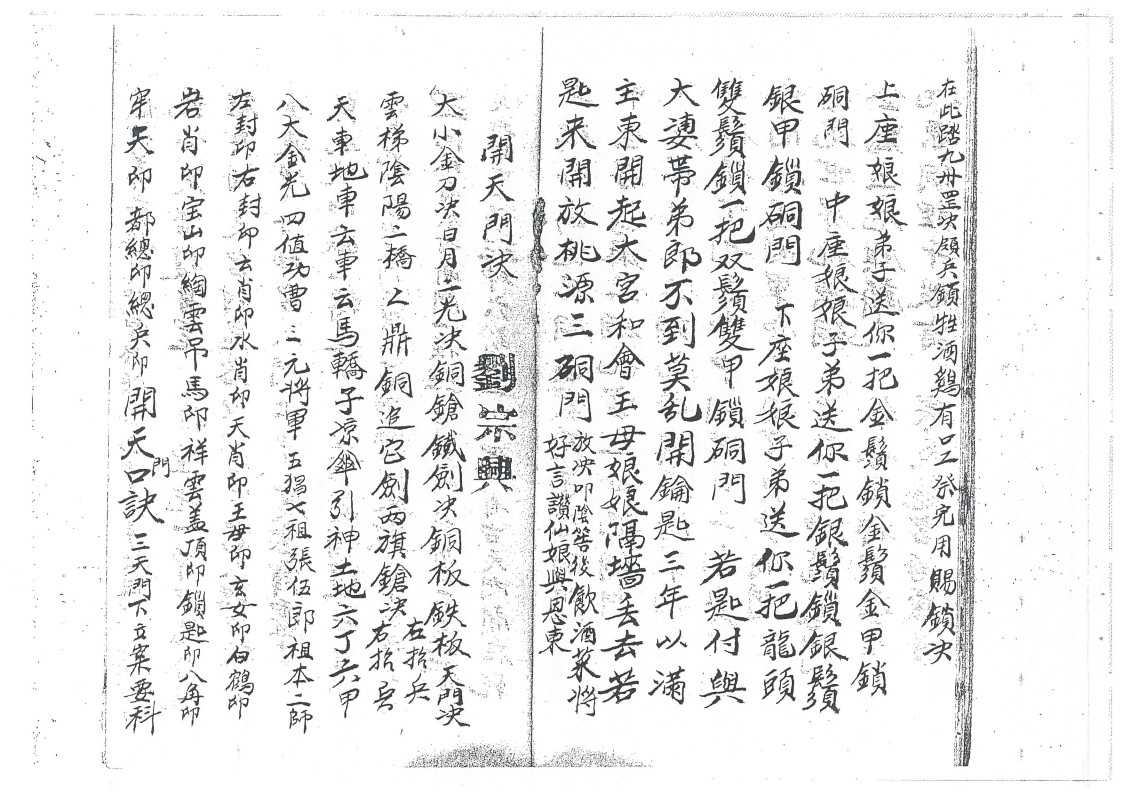 在此踏九州罡决領兵領牲酒鷄有口工癸完用賜鎖决
上座娘娘弟子送你一把金鬚鎖金鬚金甲鎖
硐門 中座娘娘子弟送你一把銀鬚鎖銀鬚
銀甲鎖硐門 下座娘娘子弟送你一把龍頭
雙鬚鎖一把双鬚雙甲鎖硐門 若匙付與
大婆帯弟郎不到莫乱開鑰匙三年以滿
主東開起大宮和會王母娘娘隔墻丢去若
匙来開放桃源三硐門 放决叩陰筶後飲酒菜將
好言讚仙娘興恩東
開天門决 劉崇興
大小金刀决日月二光决銅鎗鐡劍决銅板鉄板天門决
雲梯陰陽二橋 鼎銅追它劍两旗鎗决 左抬兵
右抬兵
天車地車云車云馬轎子凉傘引神土地六丁六甲
八大金光四值功曹三元将軍五猖七祖張伍郎祖本二師
左封印右封印云肖印水肖印天肖印王母印玄女印白鶴印
岩肖印宝山印綯雲吊馬印祥雲盖頂印鎖匙印八角印
牢矢印 都總印總兵印 開天門口訣 三天門下立案要科